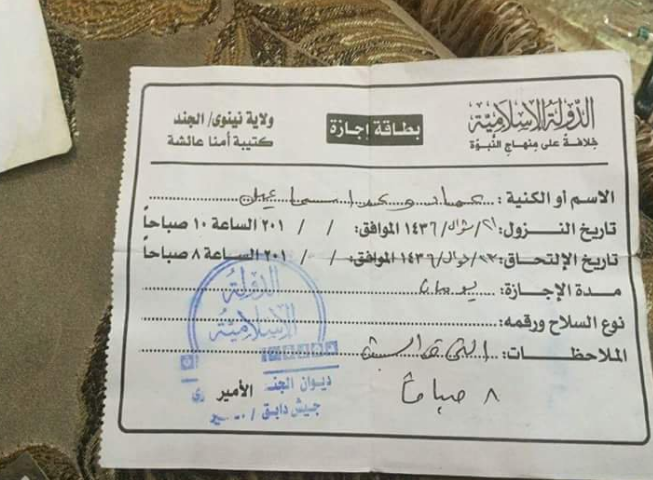 الدولة الإسلامية
خلافة على منهاج النبوة
بطاقة إجازة
ولاية نينوى/ الجند
كتيبة أمنا عائشة
الاسم أو الكنية :
تاريخ النزول: ٢١/شوال/١٤٣٦ الموافق: / / ٢٠١ الساعة ١٠ صباحاً
تاريخ الإلتحاق: ٢٣/شوال/١٤٣٦ الموافق: / / ٢٠١ الساعة ٨ صباحاً
مدة الإجازة: يومان
نوع السلاح ورقمه:
الملاحظات: السبت
٨ صباحاً
الأمير
الدولة
الإسلامية
ديوان الجند
جيش دابق /